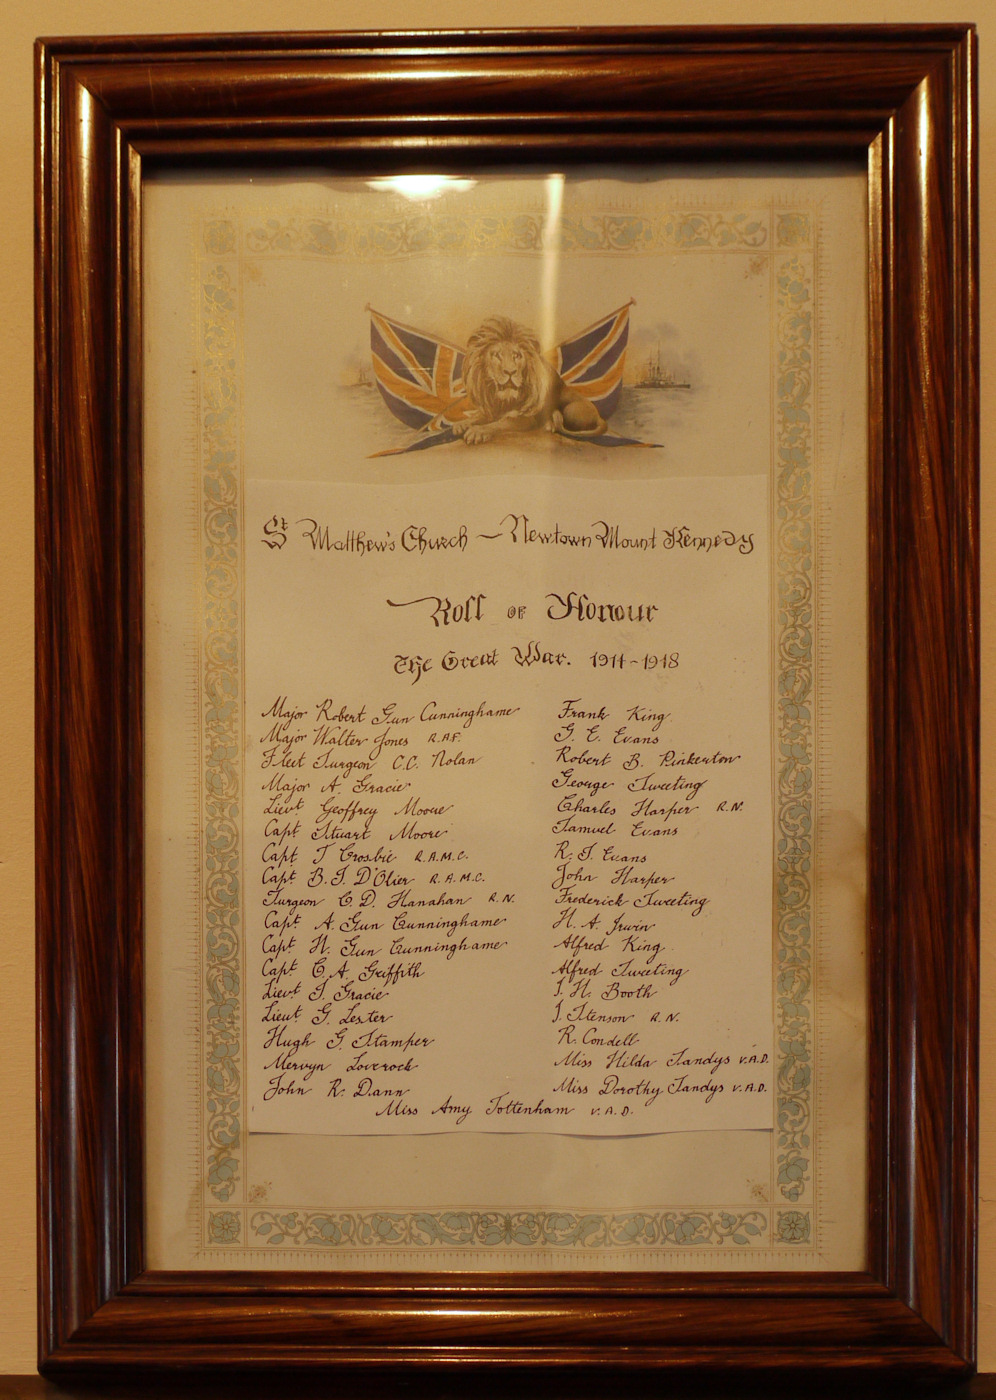 St Matthew's Church – Newtown Mount Kennedy
Roll OF Honour
The Great War. 1914-1918
Major Robert Gun Cunninghame
Major Walter Jones R.A.F.
Fleet Surgeon C.C. Nolan
Major A. Gracie
Lieut. Geoffrey Moore
Capt Stuart Moore
Capt T Crosbie R.A.M.C.
Capt B.J. D'Olier R.A.M.C.
Surgeon C.D. Hanahan R.N.
Capt A. Gun Cunninghame
Capt H. Gun Cunninghame
Capt C.A. Griffith
Lieut J. Gracie
Lieut G. Lester
Hugh G. Stamper
Mervyn Loverock
John R. Dann
Frank King
G. E. Evans
Robert B. Pinkerton
George Tweeting
Charles Harper R.N.
Samuel Evans
R. J. Evans
John Harper
Frederick Tweeting
H. A. Irwin
Alfred King
Alfred Tweeting
J. H. Booth
J. Stenson R.N.
R. Condell
Miss Hilda Tandys V.A.D.
Miss Dorothy Tandys V.A.D.
Miss Amy Tottenham V.A.D.